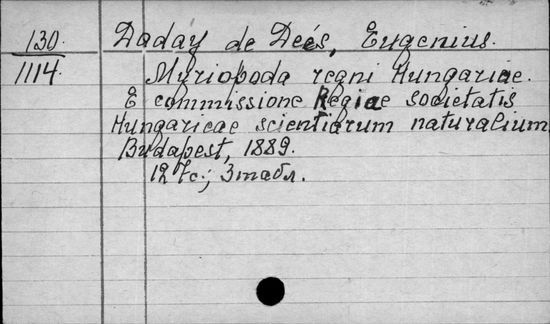 130. Daday de Deés, Eugenius.
1114. Myriopoda regni Hungariae.
E commissione Regiae societatis
Hungaricae scientiarum naturalium
Budapest, 1889.
с.; 3 табл.